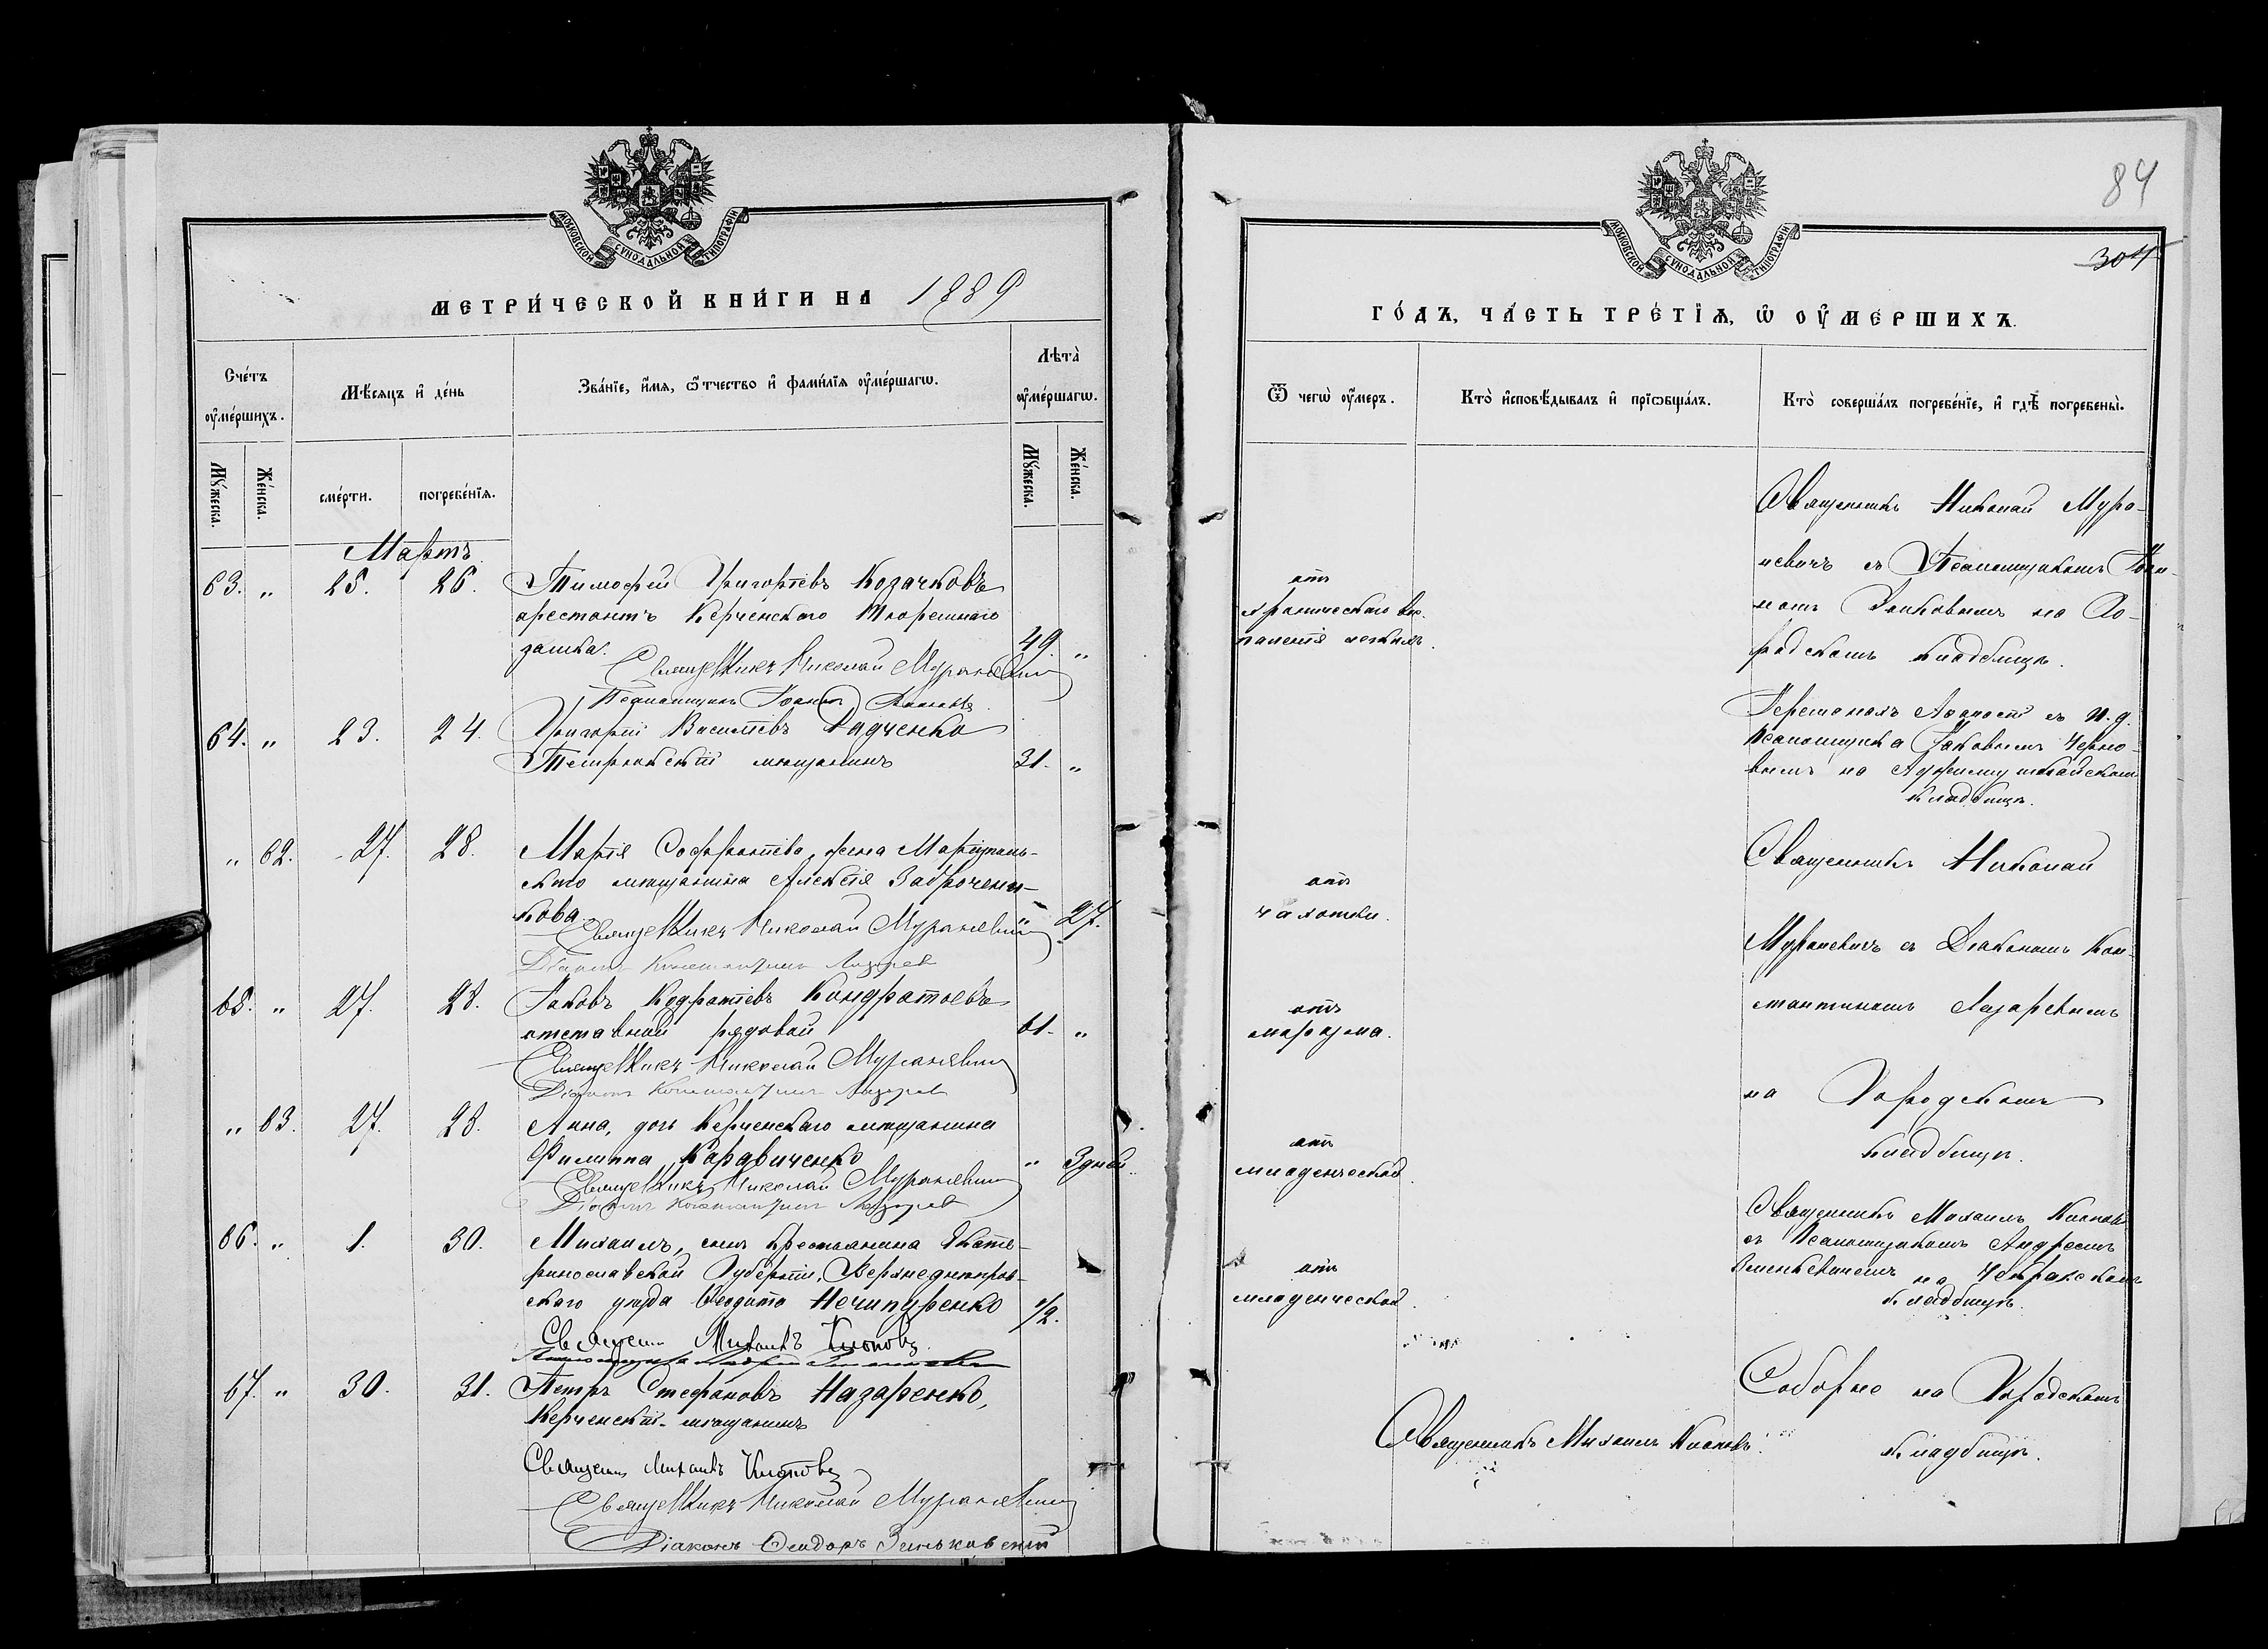 МОСКОВСКОЙ СУНОДАЛЬНОЙ ТИПОГРАФІИ
МЕТРИ́ЧЕСКОЙ КНИ́ГИ НА 1889
Сче́тъ ᲂу҆ме́ршихъ.
Мѣ́сяцъ и҆ де́нь
Зва́нїе, и҆́мѧ, ѻ҆́тчество и҆ фами́лїѧ ᲂу҆ме́ршагѡ.
Лѣта̀ ᲂу҆ме́ршагѡ.
Мꙋ́жеска.
Же́нска.
сме́рти.
погребе́нїѧ.
Мꙋ́жеска.
Же́нска.
Мартъ
63. „ 25. 26. Тимофей Григорьевъ Козачковъ
арестантъ Керченскаго Тюремнаго
замка. 49. „
Священникъ Николай Мураневичъ
Псаломщикъ Іоаннъ
64. „ 23. 24. Григорій Васильевъ Дядченко
Темрюкскій мѣщанинъ 31. „
„ 62. 27. 28. Марія Софроніева, жена Маріуполь-
скаго мѣщанина Алексія Заброченни-
кова „ 27.
Священникъ Николай Мураневичъ
Діаконъ Константинъ Лазарев
65. „ 27. 28. Іаковъ Кодратіевъ Кондратьевъ
отставной рядовой 61. „
Священникъ Николай Мураневичъ
Діаконъ Константинъ Лазарев
„ 63. 27. 28. Анна, дочь Керченскаго мѣщанина
Филиппа Каравиченко „ 3 дней.
Священникъ Николай Мураневичъ
Діаконъ Константинъ Лазарев
66. „ 1. 30. Михаилъ, сынъ крестьянина Екате-
ринославской Губерніи, Верхнеднѣпров-
скаго уѣзда Ѳеодота Нечипуренко 1/2.
Священ. Михаилъ Клоповъ
67. „ 30. 31. Петръ Стефановъ Назаренко,
Керченскій мѣщанинъ
Священ. Михаилъ Клоповъ
Священникъ Николай Мураневичъ
Діаконъ Ѳеодоръ Зиньковскій
84
304
МОСКОВСКОЙ СУНОДАЛЬНОЙ ТИПОГРАФІИ
ГО́ДЪ, ЧА́СТЬ ТРЕ́ТЇѦ, Ѡ҆ ОУ҆МЕ́РШИХЪ.
Ѿ чегѡ̀ ᲂу҆́меръ.
Кто̀ и҆сповѣ́дывалъ и҆ прїѡбща́лъ.
Кто̀ соверша́лъ погребе́нїе, и҆ гдѣ̀ погребены̀.
отъ
хроническаго вос-
паленія легкихъ.
Священникъ Николай Мура-
невичъ съ Псаломщикомъ Іоан-
номъ на Го-
родскомъ кладбищѣ.
Іеромонахъ съ и. д.
Псаломщика Яковомъ Черно-
вымъ на Аджимушкайскомъ
кладбищѣ.
отъ
чахотки.
Священникъ Николай
Мураневичъ съ Діакономъ Кон-
стантиномъ Лазаревымъ
на Городскомъ
кладбищѣ.
отъ
маразма.
отъ
младенческой.
отъ
младенческой.
Священникъ Михаилъ Клоповъ
съ Псаломщикомъ Андреемъ
на
кладбищѣ.
Священникъ Михаилъ Клоповъ.
Соборне на Городскомъ
кладбищѣ.